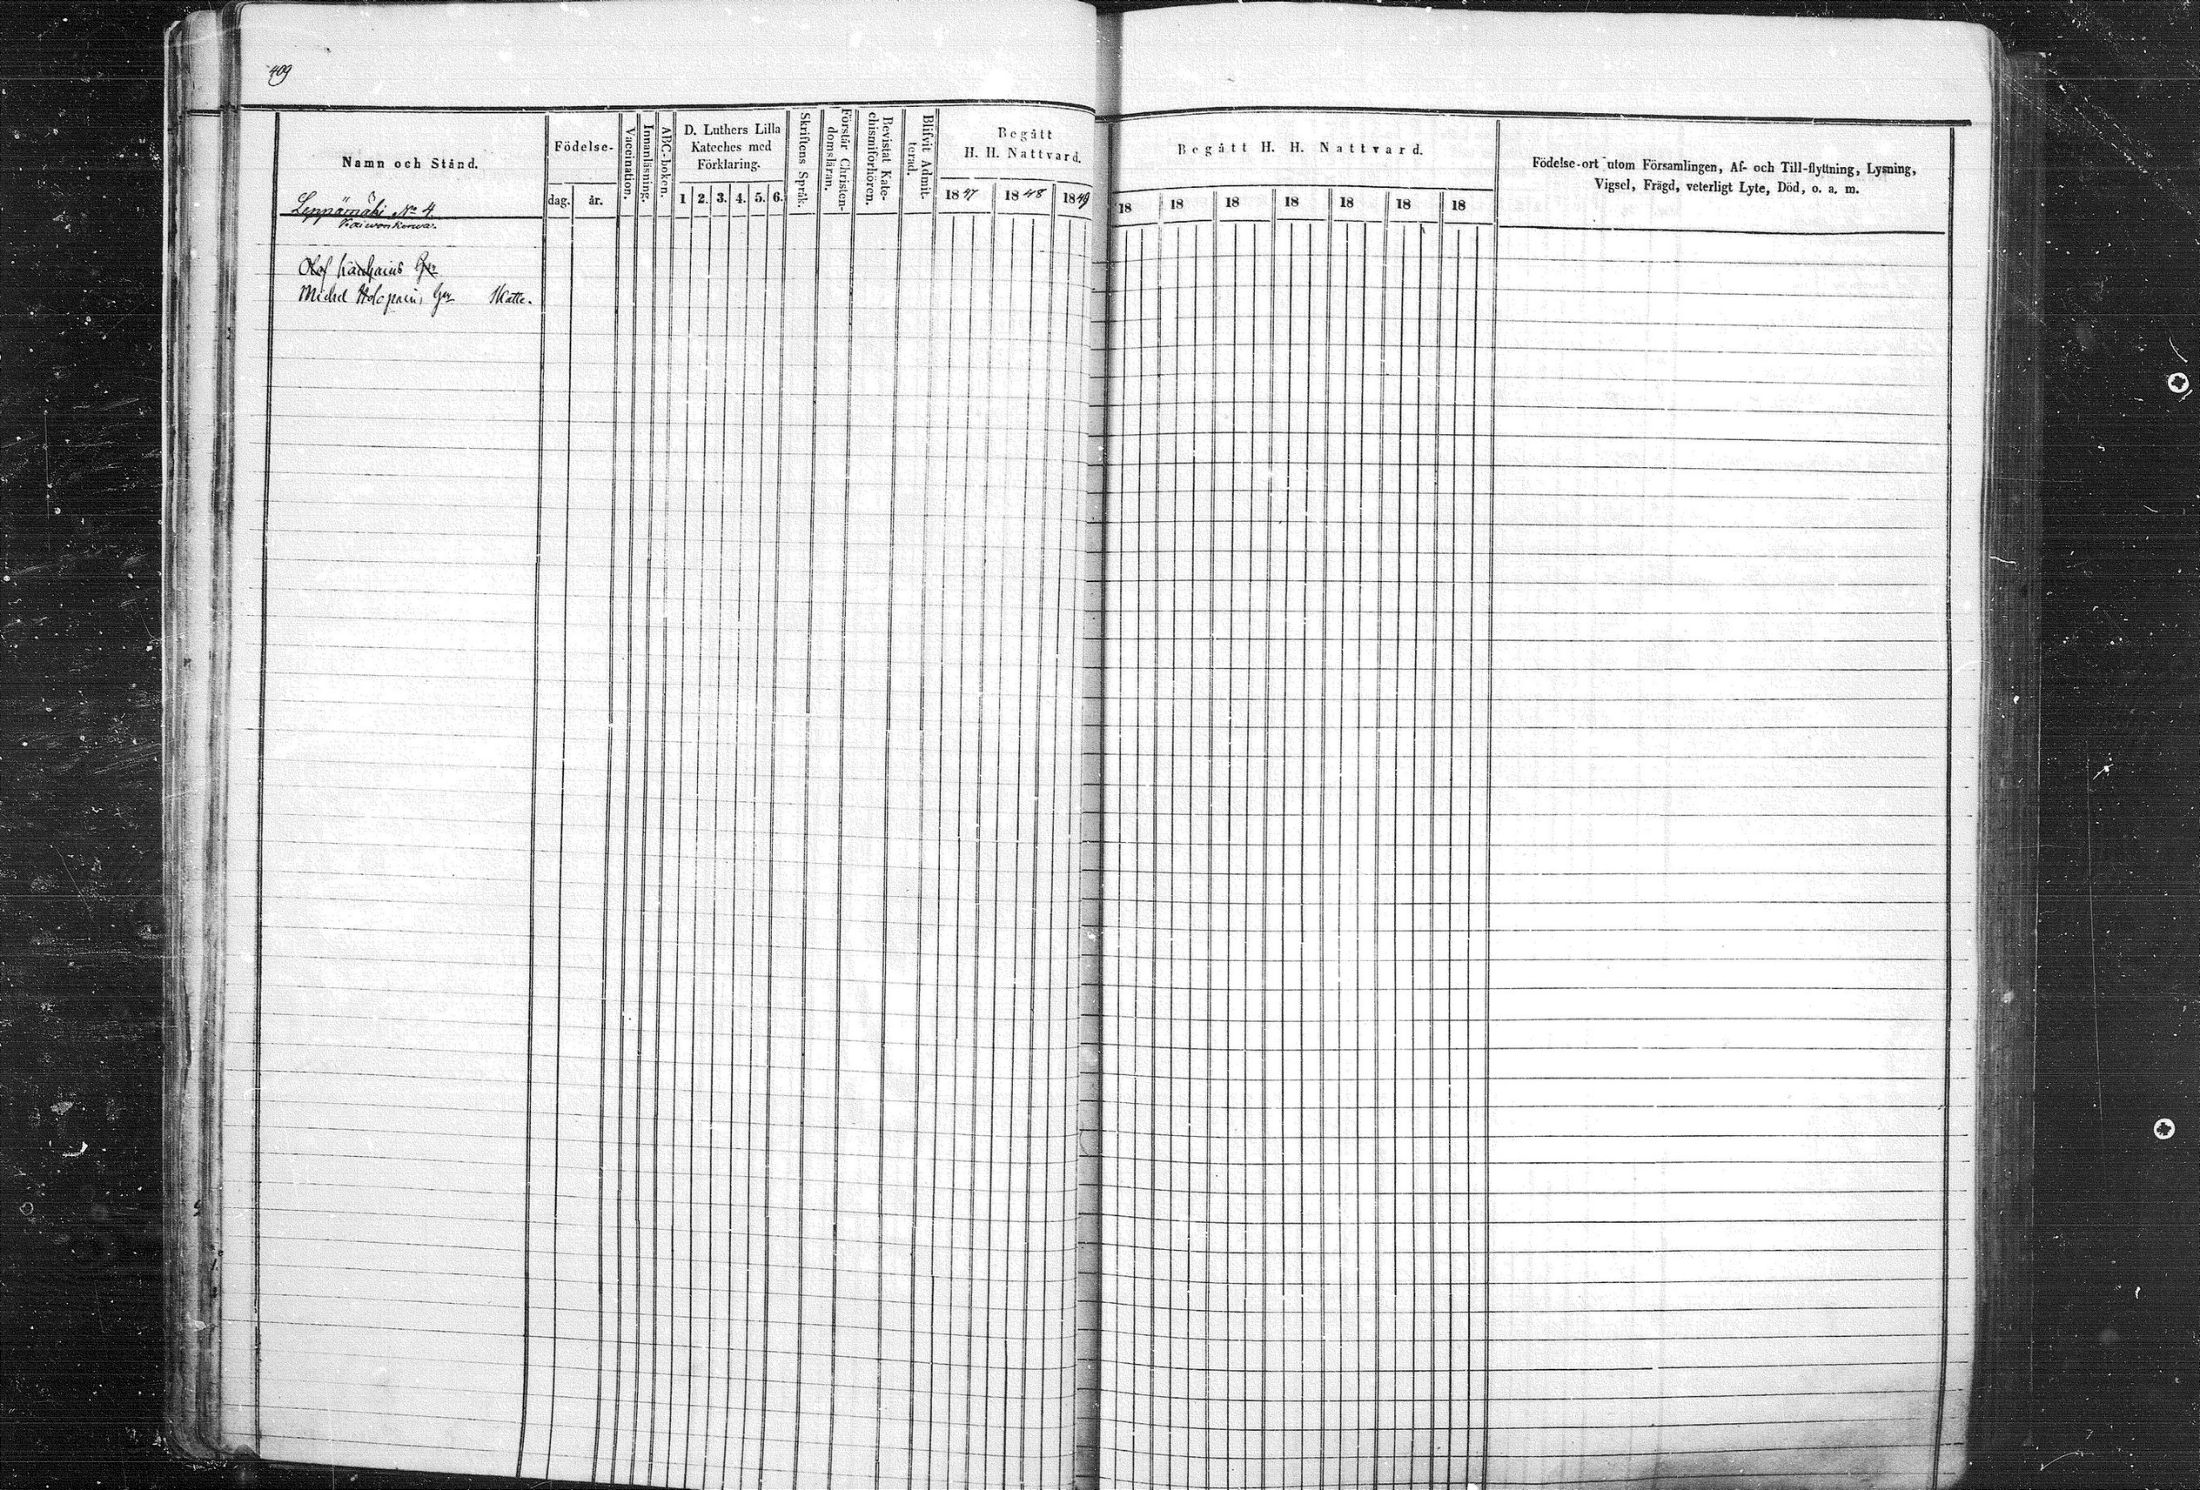 409
Namn och Stånd.
Födelse-
dag.
år.
Vaccination.
Innanläsning.
ABC-boken.
D. Luthers Lilla
Kateches med
Förklaring.
1 2. 3. 4. 5. 6.
Skriftens Språk.
Förstår Christen-
domsläran.
Bevistat Kate-
chismiförhören.
Blifvit Admit-
terad.
Begått
H. H. Nattvard.
1847 1848 1849
Begått H. H. Nattvard.
18 18 18 18 18 18 18
Födelse-ort utom Församlingen, Af- och Till-flyttning, Lysning,
Vigsel, Frägd, veterligt Lyte, Död, o. a. m.
Leppämäki No 4.
Olof
Michel Holopain